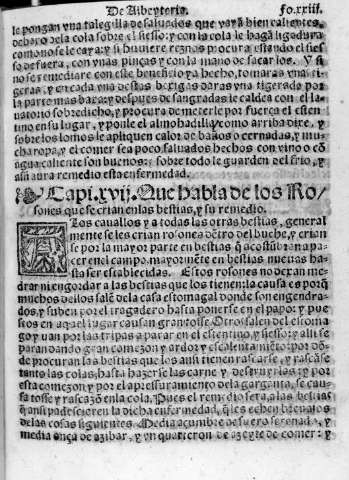 De Albeyteria. fo.xxiii.
le pongan vna taleguilla de saluados que vayã bien calientes
debaxo de la cola sobre el siesso: y con la cola le hagã ligadura
como no se le cayga: y si huuiere reznos procura estando el sies
so de fuera, con vnas pinças y con la mano de sacar los. Y si
no se remediare con este beneficio ya hecho, tomaras vna ti-
geras, y en cada vna destas bexigas daras vna tigerada por
la parte mas baxa: y despues de sangradas le caldea con el la-
uatorio sobredicho, y procura de meter le por fuerça el esten
tino en su lugar, y ponle el almohadilla como arriba dixe, y
sobre los lomos le apliquen calor de baños o cernadas, y mu-
cha ropa, y el comer sea poco, saluados hechos con vino o cõ
agua caliente son buenos: sobre todo le guarden del frio, y
assi aura remedio esta enfermedad.
Capi.xvij. Que habla de los Ro-
sones que se crian en las bestias, y su remedio.
A Los cauallos y a todas las otras bestias, general
mente se les crian rosones dẽtro del buche, y crian
se por la mayor parte en bestias q̃ acostũbran a pa
cer en el campo, mayormẽte en bestias nueuas ha
sta ser establecidas. Estos rosones no dexan me-
drar ni engordar a las bestias que los tienen: la causa es porq̃
muchos dellos salẽ de la casa estomagal donde son engendra-
dos, y suben por el tragadero hasta ponerse en el papo: y pue
stos en aquel lugar causan gran tosse. Otros salen del estoma
go y van por las tripas a parar en el estentino, y siesso: y alli se
paran dando gran comezon y ardor y escolentamiẽto: por dõ
de procuran las bestias que los assi tienen rascarse, y rascãse
tanto las colas, hasta hazerse las carne y destruyrlas: y por
esta comezon y por el apressuramiento de la garganta, se cau-
sa tosse y rascazõ en la cola. Pues el remedio sera, a las bestias
q̃ ansi padescieren la dicha enfermedad, q̃ les echen breuajos
de las cosas siguientes. Media açumbre de suero serenada, y
media onça de azibar, y vn quarteron de azeyte de comer: y